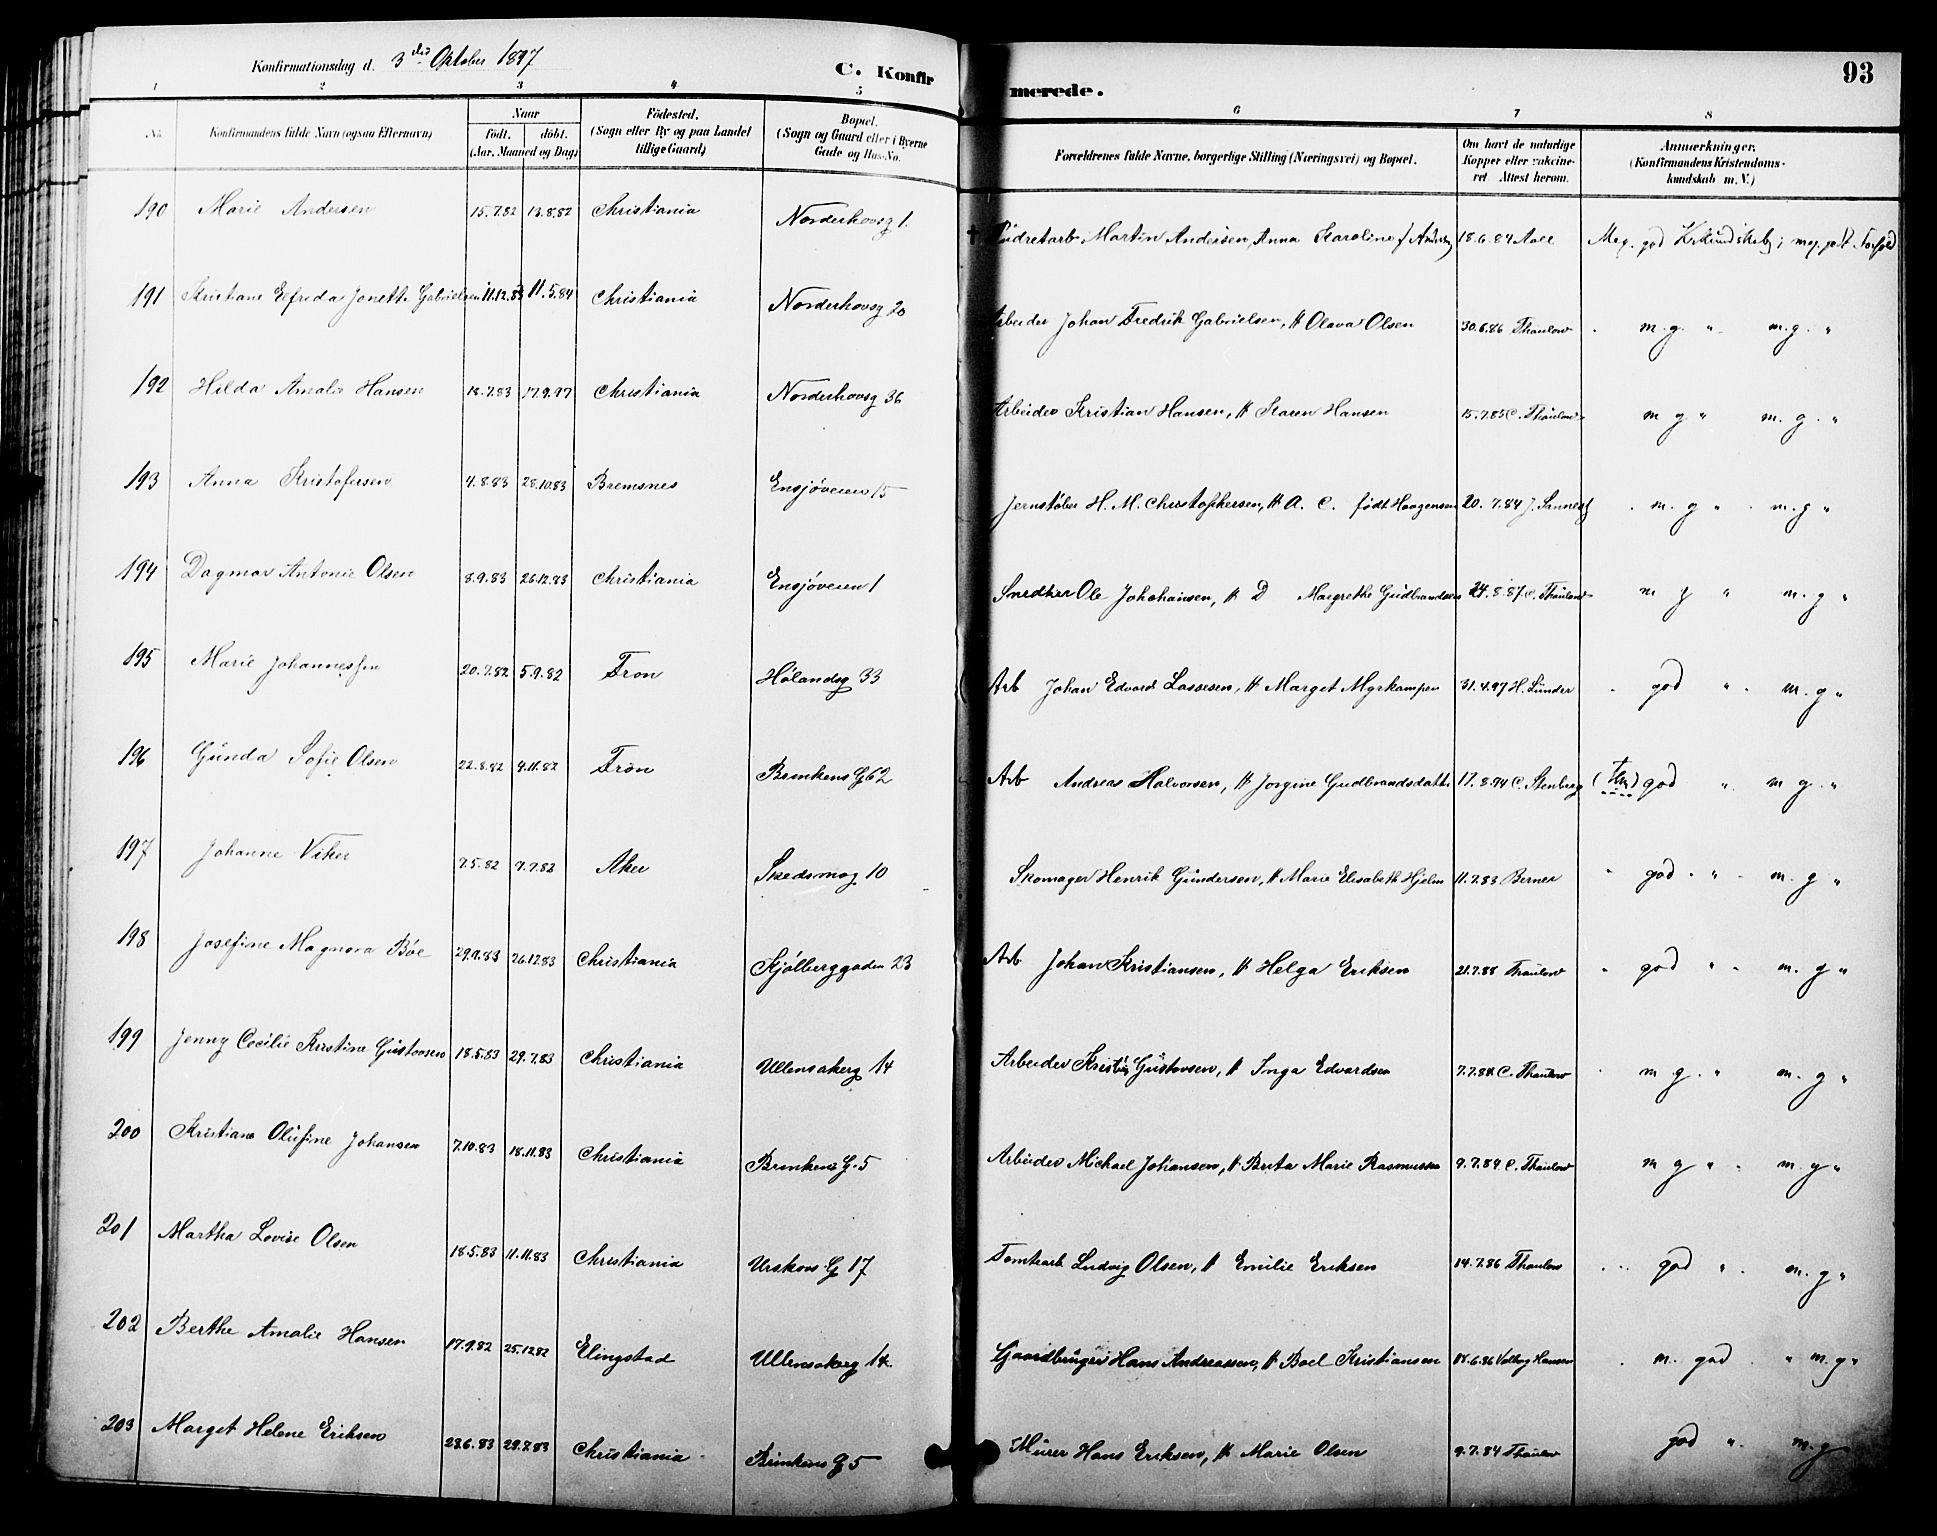 Konfirmationsdag d. 3die Oktober 1897
C. Konfirmerede.
93
1 2 3 4 5 6 7 8
No. Konfirmandens fulde Navn (ogsaa Efternavn)
Naar født. døbt. (Aar, Maaned og Dag)
Fødested. (Sogn eller By og paa Landet tillige Gaard)
Bopæl. (Sogn og Gaard eller i Byerne Gade og Hus-No.
Forældrenes fulde Navne, borgerlige Stilling (Næringsvei) og Bopæl.
Om havt de naturlige Kopper eller vakcineret Attest herom.
Anmærkninger. (Konfirmandens Kristendomskundskab m. V.)
190 Marie Andersen 15.7.82 13.8.82 Christiania Norderhovsg 1. Martin Andersen, Anna Karoline 18.6.84 Meg. god Krkundskab; meg. godt Forhold
191 Kristiane Elfrida Jonette Gabrielsen 11.12.83 11.5.84 Christiania Norderhovsg 20 Arbeider Johan Fredrik Gabrielsen, H Olava Olsen 30.6.86 Thaulow m. g. " m. g. "
192 Hilda Amalie Hansen 18.7.83 17.9.97 Christiania Norderhovsg 36 Arbeider Kristian Hansen, H Karen Hansen 15.7.85 C. Thaulow m g " m. g. "
193 Anna Kristofersen 4.8.83 28.10.83 Bremsnes Ensjøveien 15 Jernstøber H. M. Christophersen, H A. C. født Haagensen 20.7.84 J. Sannes m. g " m. g "
194 Dagmar Antonie Olsen 8.9.83 26.12.83 Christiania Ensjøveien 1 Snedker Ole Johohansen, H D Margrethe Gudbrandsen 24.8.87 C. Thaulow m g " m. g "
195 Marie Johannessen 20.7.82 5.9.82 Fron Hølandsg 33 Arb Johan Edvard Lassesen, H Marget Myrkampen 31.4.97 H. Lunder god " m. g "
196 Gunda Sofie Olsen 22.8.82 4.11.82 Fron Brinkens G 62 Arb Andreas Halvorsen, H Jorgine Gudbrandsdatter 17.8.94 C. Stenberg god " m g. "
197 Johanne Viker 7.5.82 9.7.82 Aker Skedsmog 10 Skomager Henrik Gundersen, H Marie Elisabeth Hjelm 11.7.83 Berner god " m. g "
198 Josefine Magnora Bøe 29.9.83 26.12.83 Christiania Kjølberggaden 23 Arb Johan Kristiansen, H Helga Eriksen 21.7.88 Thaulow god " m. g "
199 Jenny Cecilie Kristine Gustavsen 18.5.83 29.7.83 Christiania Ullensakerg 14 Arbeider Gustavsen, H Inga Edvardsen 7.7.84 C. Thaulow m g. " m. g "
200 Kristiane Olufine Johansen 7.10.83 18.11.83 Christiania Brinkens G. 5 Arbeider Michael Johansen, H Brita Marie Rasmussen 9.7.84 C. Thaulow m g " m. g "
201 Martha Lovise Olsen 18.5.83 11.11.83 Christiania Urskovs G 17 Tomtearb Ludvig Olsen, H Emilie Eriksen 14.7.86 Thaulow god " m. g "
202 Berthe Amalie Hansen 17.9.82 25.12.82 Elingstad Ullensakerg 14. Gaardbruger Hans Andreassen, H Boel Kristiansen 18.6.86 Valborg Hansen m. god " m. g "
203 Marget Helene Eriksen 28.6.83 29.7.83 Christiania Brinkens G 5 Murer Hans Eriksen, H Marie Olsen 9.7.84 Thaulow god " m. g